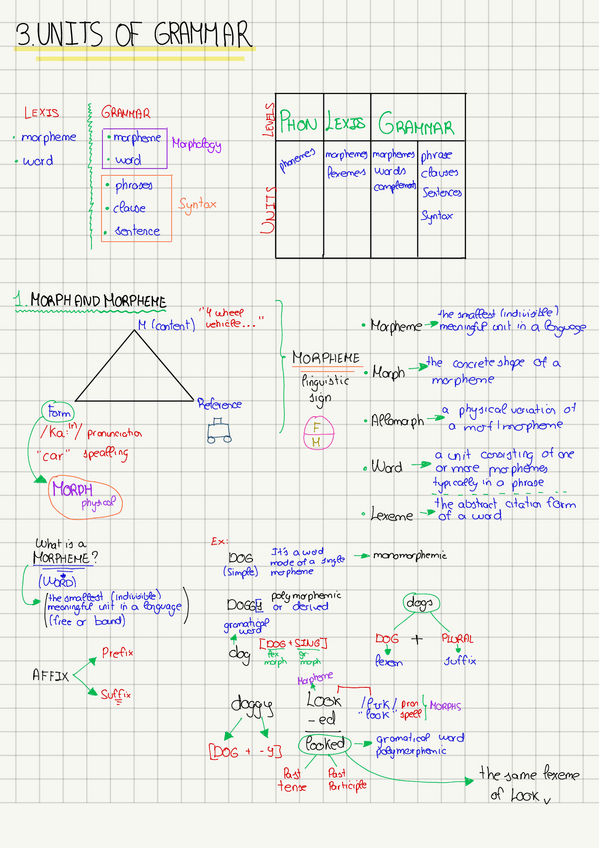 3. UNITS OF GRAMMAR
LEXIS
• morpheme
• word
GRAMMAR
• morpheme
• word
Morphology
• phrases
• clause
• sentence
Syntax
LEVELS
PHON LEXIS GRAMMAR
UNITS
phonemes
morphemes
lexemes
morphemes
words
phrase
clauses
Sentences
Syntax
1. MORPH AND MORPHEME
M (content)
"4 wheel
vehicle..."
Reference
form
pronunciation
"car" spealling
MORPH
physical
MORPHEME
linguistic
sign
F
M
• Morpheme → the smallest (indivisible)
meaningful unit in a language
• Morph → the concrete shape of a
morpheme
• Allomorph → a physical variation of
a morpheme
• Word → a unit consisting of one
or more morphemes
typically in a phrase
• Lexeme → the abstract citation form
of a word
What is a
MORPHEME?
(WORD)
the smallest (indivisible)
meaningful unit in a language
(free or bound)
AFFIX
Prefix
Suffix
Ex:
DOG
(Simple)
It's a word
mode of a single
morpheme
→ monomorphemic
polymorphemic
or derived
gramatical
word
dog
[DOG + SING]
morph
morph
dogs
DOG + PLURAL
suffix
doggy
[DOG + -Y]
Morpheme
LOOK
-ed
looked
/lʊk/ pron
"look" spell
MORPHS
→ gramatical word
polymorphemic
Past
tense
Past
Participle
the same lexeme
of LOOK